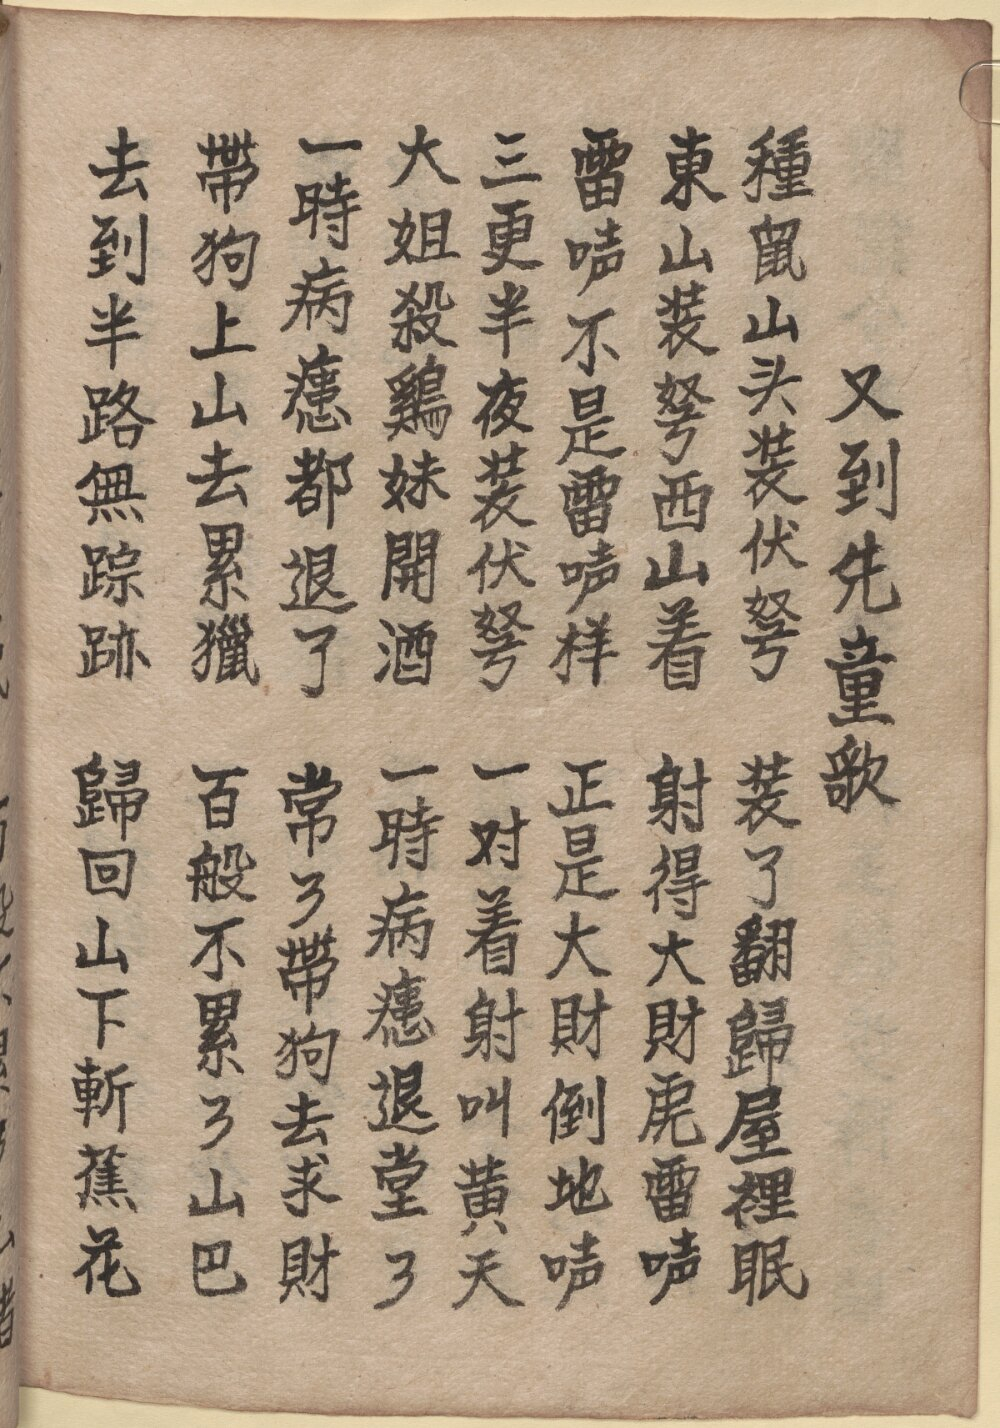 又到先童歌
種鼠山头装伏弩 装了翻歸屋裡眠
東山装弩西山着 射得大財虎雷唪
雷唪不是雷唪样 正是大財倒地唪
三更半夜装伏弩 一对着射叫黄天
大姐殺鷄妹開酒 一時病瘜退堂了
一時病瘜都退了 常了帶狗去求財
帶狗上山去累獵 百般不累了山巴
去到半路無踪跡 歸回山下斬蕉花